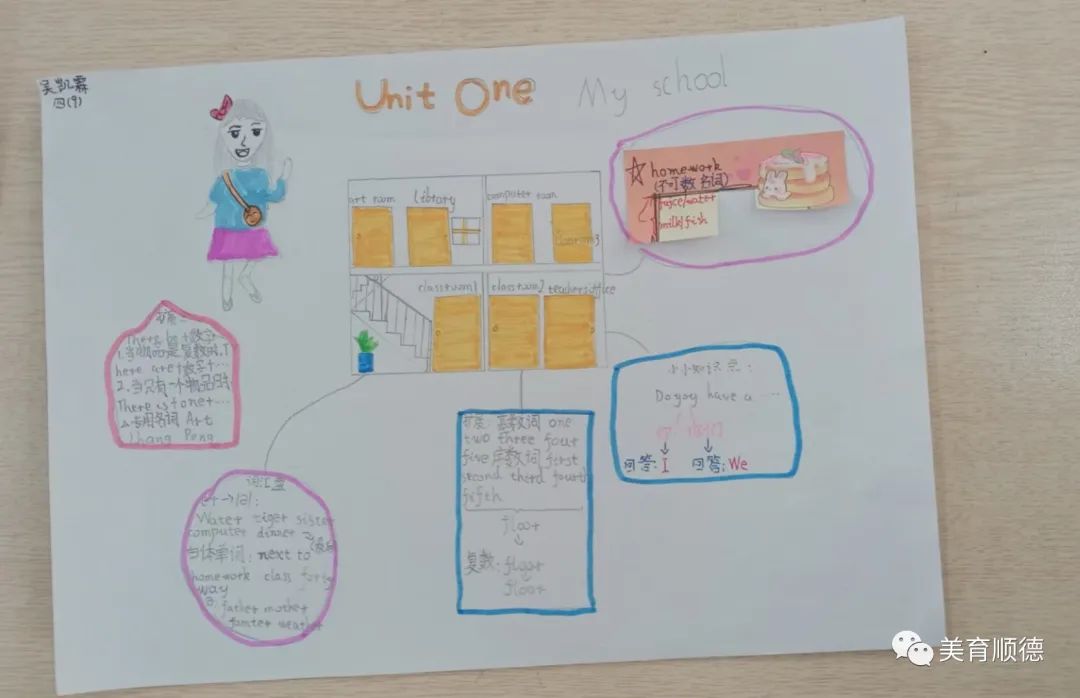 吴凯霖
四(9)
Unit One My school
☆homework
(不可数名词)
juice/water
milk/fish
art room library computer room
classroom3
classroom1 classroom2 teachers office
扩展:
There be+数字
1.当物品是复数时,T
here are+数字+…
2.当只有一个物品时,
There is+one+…
专用名词 Art
Zhang Peng
小小知识点:
Do you have a …
你 你们
回答:I 回答:We
扩展:基数词 one
two three four
five 序数词 first
second third fourth
fifth
floor
复数:floor
floor
词汇量
er→|ə|:
Water tiger sister
computer dinner
四体单词:next to
homework class forty
way
father mother
weather
美育顺德